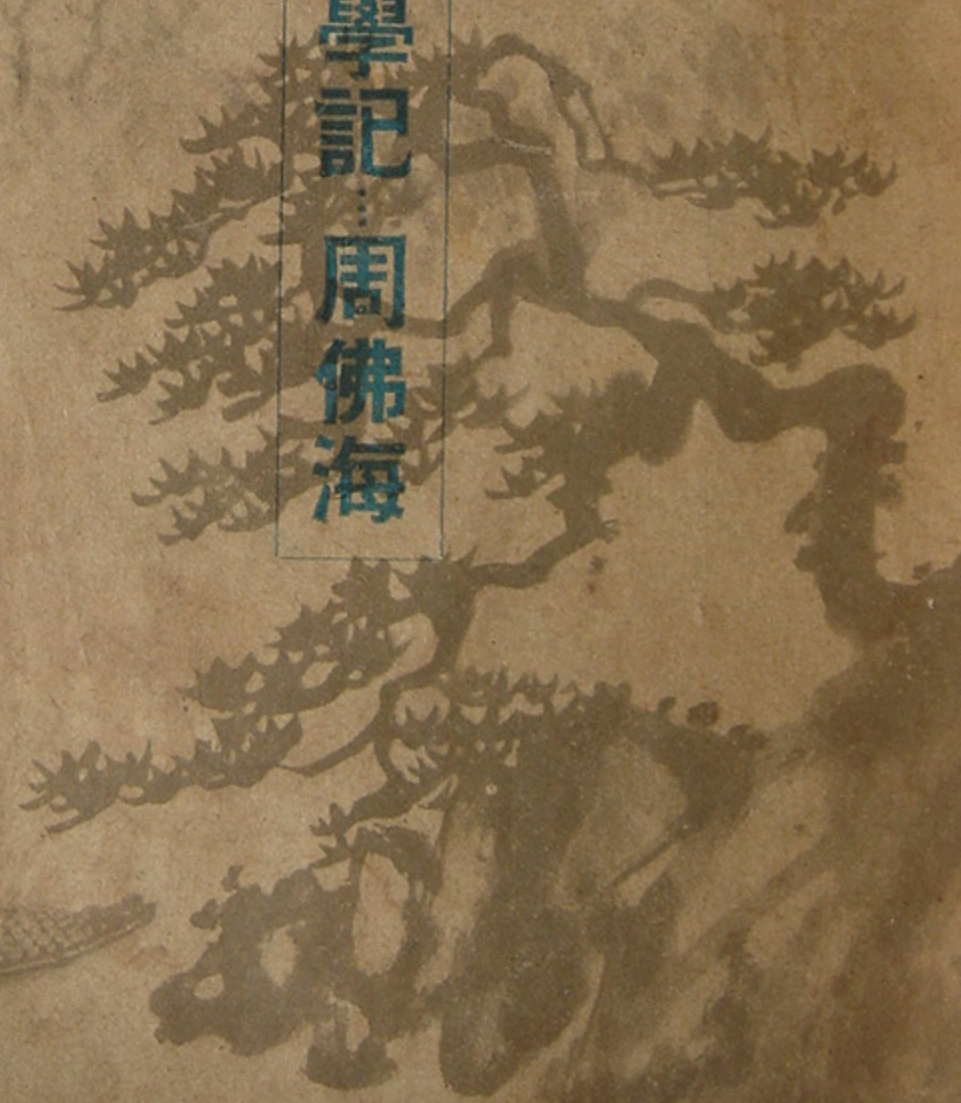 學記⋯周佛海